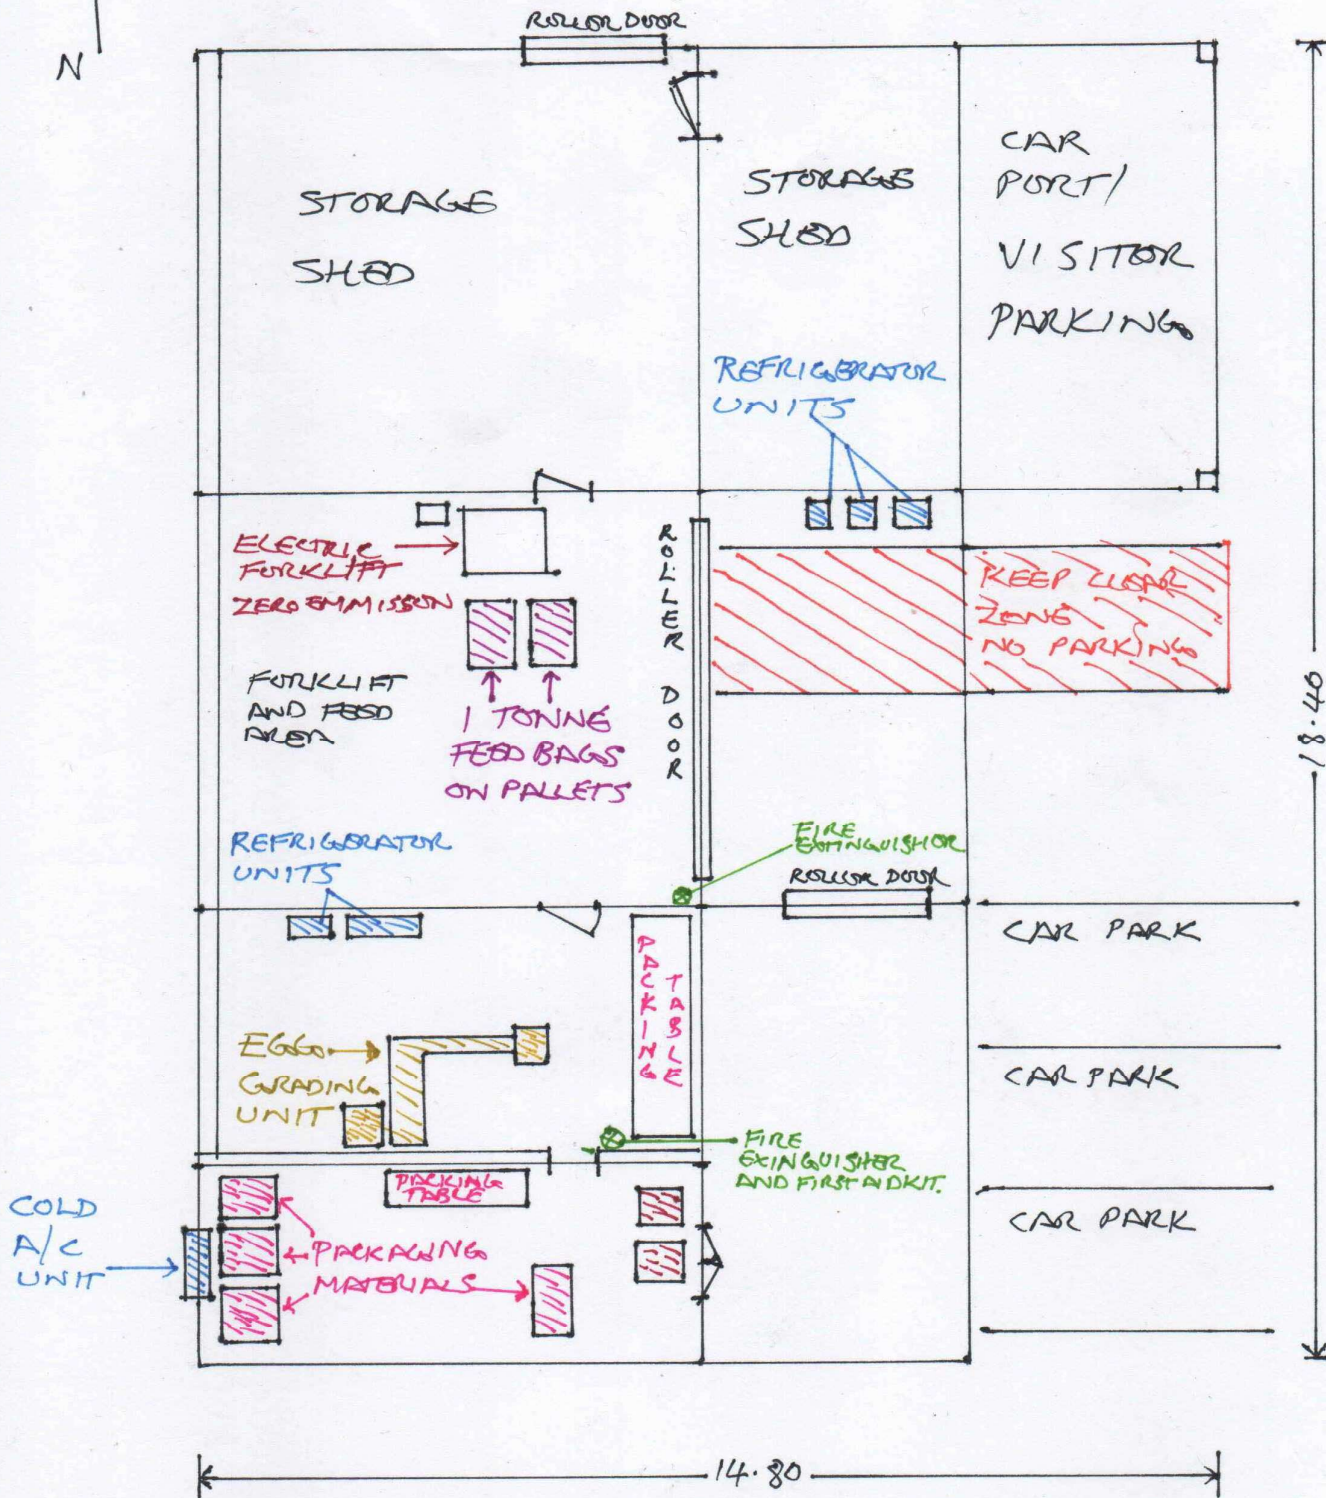 ROLLER DOOR
N
STORAGE
SHED
STORAGE
SHED
CAR
PORT/
VISITOR
PARKING
REFRIGERATOR
UNITS
ELECTRIC
FORKLIFT
ZERO EMMISSON
ROLLER DOOR
KEEP CLEAR
ZONE
NO PARKING
FORKLIFT
AND FEED
AREA
1 TONNE
FEED BAGS
ON PALLETS
18.40
REFRIGERATOR
UNITS
FIRE
EXTINGUISHER
ROLLER DOOR
CAR PARK
PACKING
TABLE
EGG
GRADING
UNIT
CAR PARK
FIRE
EXINGUISHER
AND FIRST AID KIT.
PACKING
TABLE
COLD
A/C
UNIT
PACKAGING
MATERIALS
CAR PARK
14.80